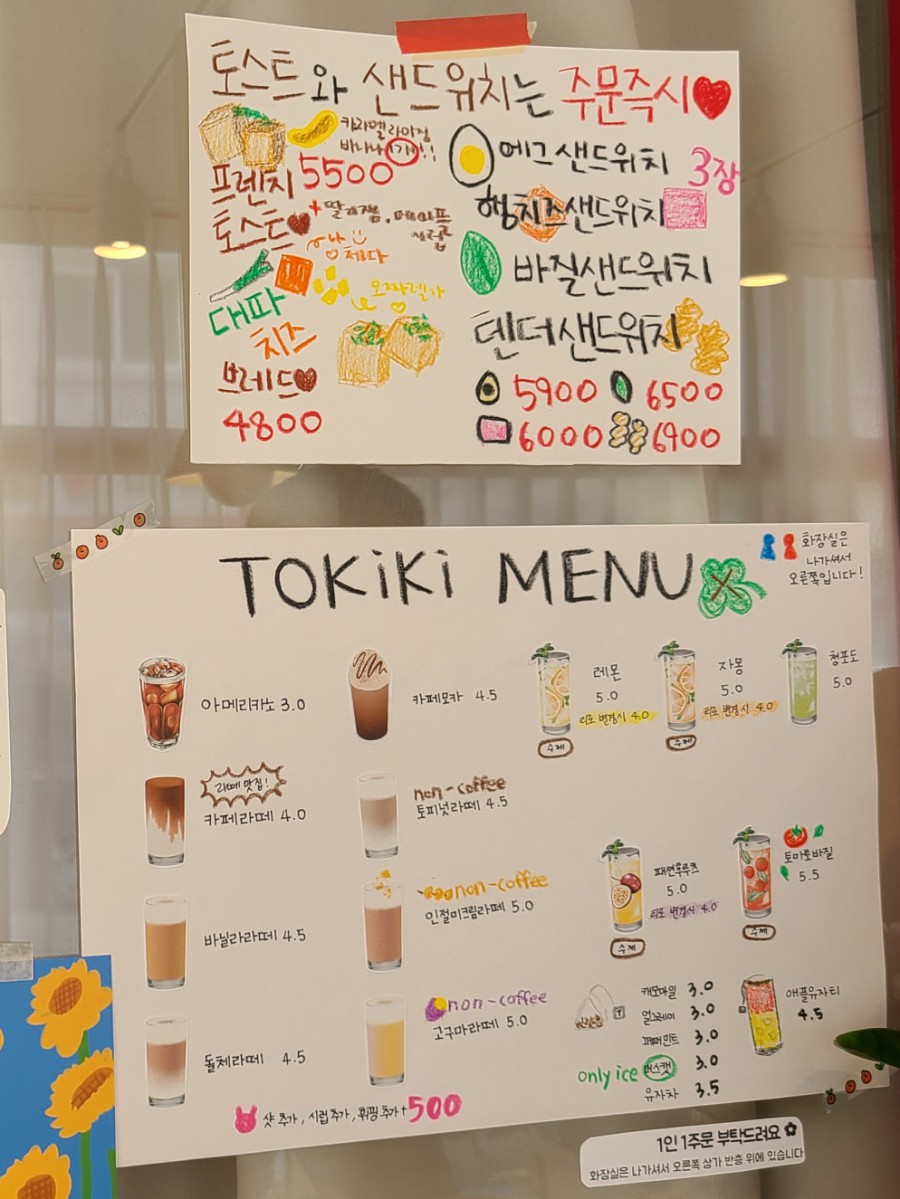 토스트와 샌드위치는 주문즉시
카라멜라이징
바나나 1개!!
프렌치 5500
토스트
+ 딸기잼, 메이플
시럽
체다
모짜렐라
대파
치즈
브레드
4800
에그샌드위치 3장
햄치즈샌드위치
바질샌드위치
텐더샌드위치
5900 6500
6000 6900
TOKiKi MENU
화장실은
나가셔서
오른쪽입니다!
아메리카노 3.0
라떼 맛집!
카페라떼 4.0
바닐라라떼 4.5
돌체라떼 4.5
카페모카 4.5
non-coffee
토피넛라떼 4.5
non-coffee
인절미크림라떼 5.0
non-coffee
고구마라떼 5.0
레몬
5.0
티로 변경시 4.0
수제
자몽
5.0
티로 변경시 4.0
수제
청포도
5.0
패션후루츠
5.0
티로 변경시 4.0
수제
토마토바질
5.5
수제
캐모마일 3.0
얼그레이 3.0
페퍼민트 3.0
only ice 머스캣 3.0
유자차 3.5
애플유자티
4.5
샷 추가, 시럽 추가, 휘핑 추가 +500
1인 1주문 부탁드려요
화장실은 나가셔서 오른쪽 상가 반층 위에 있습니다